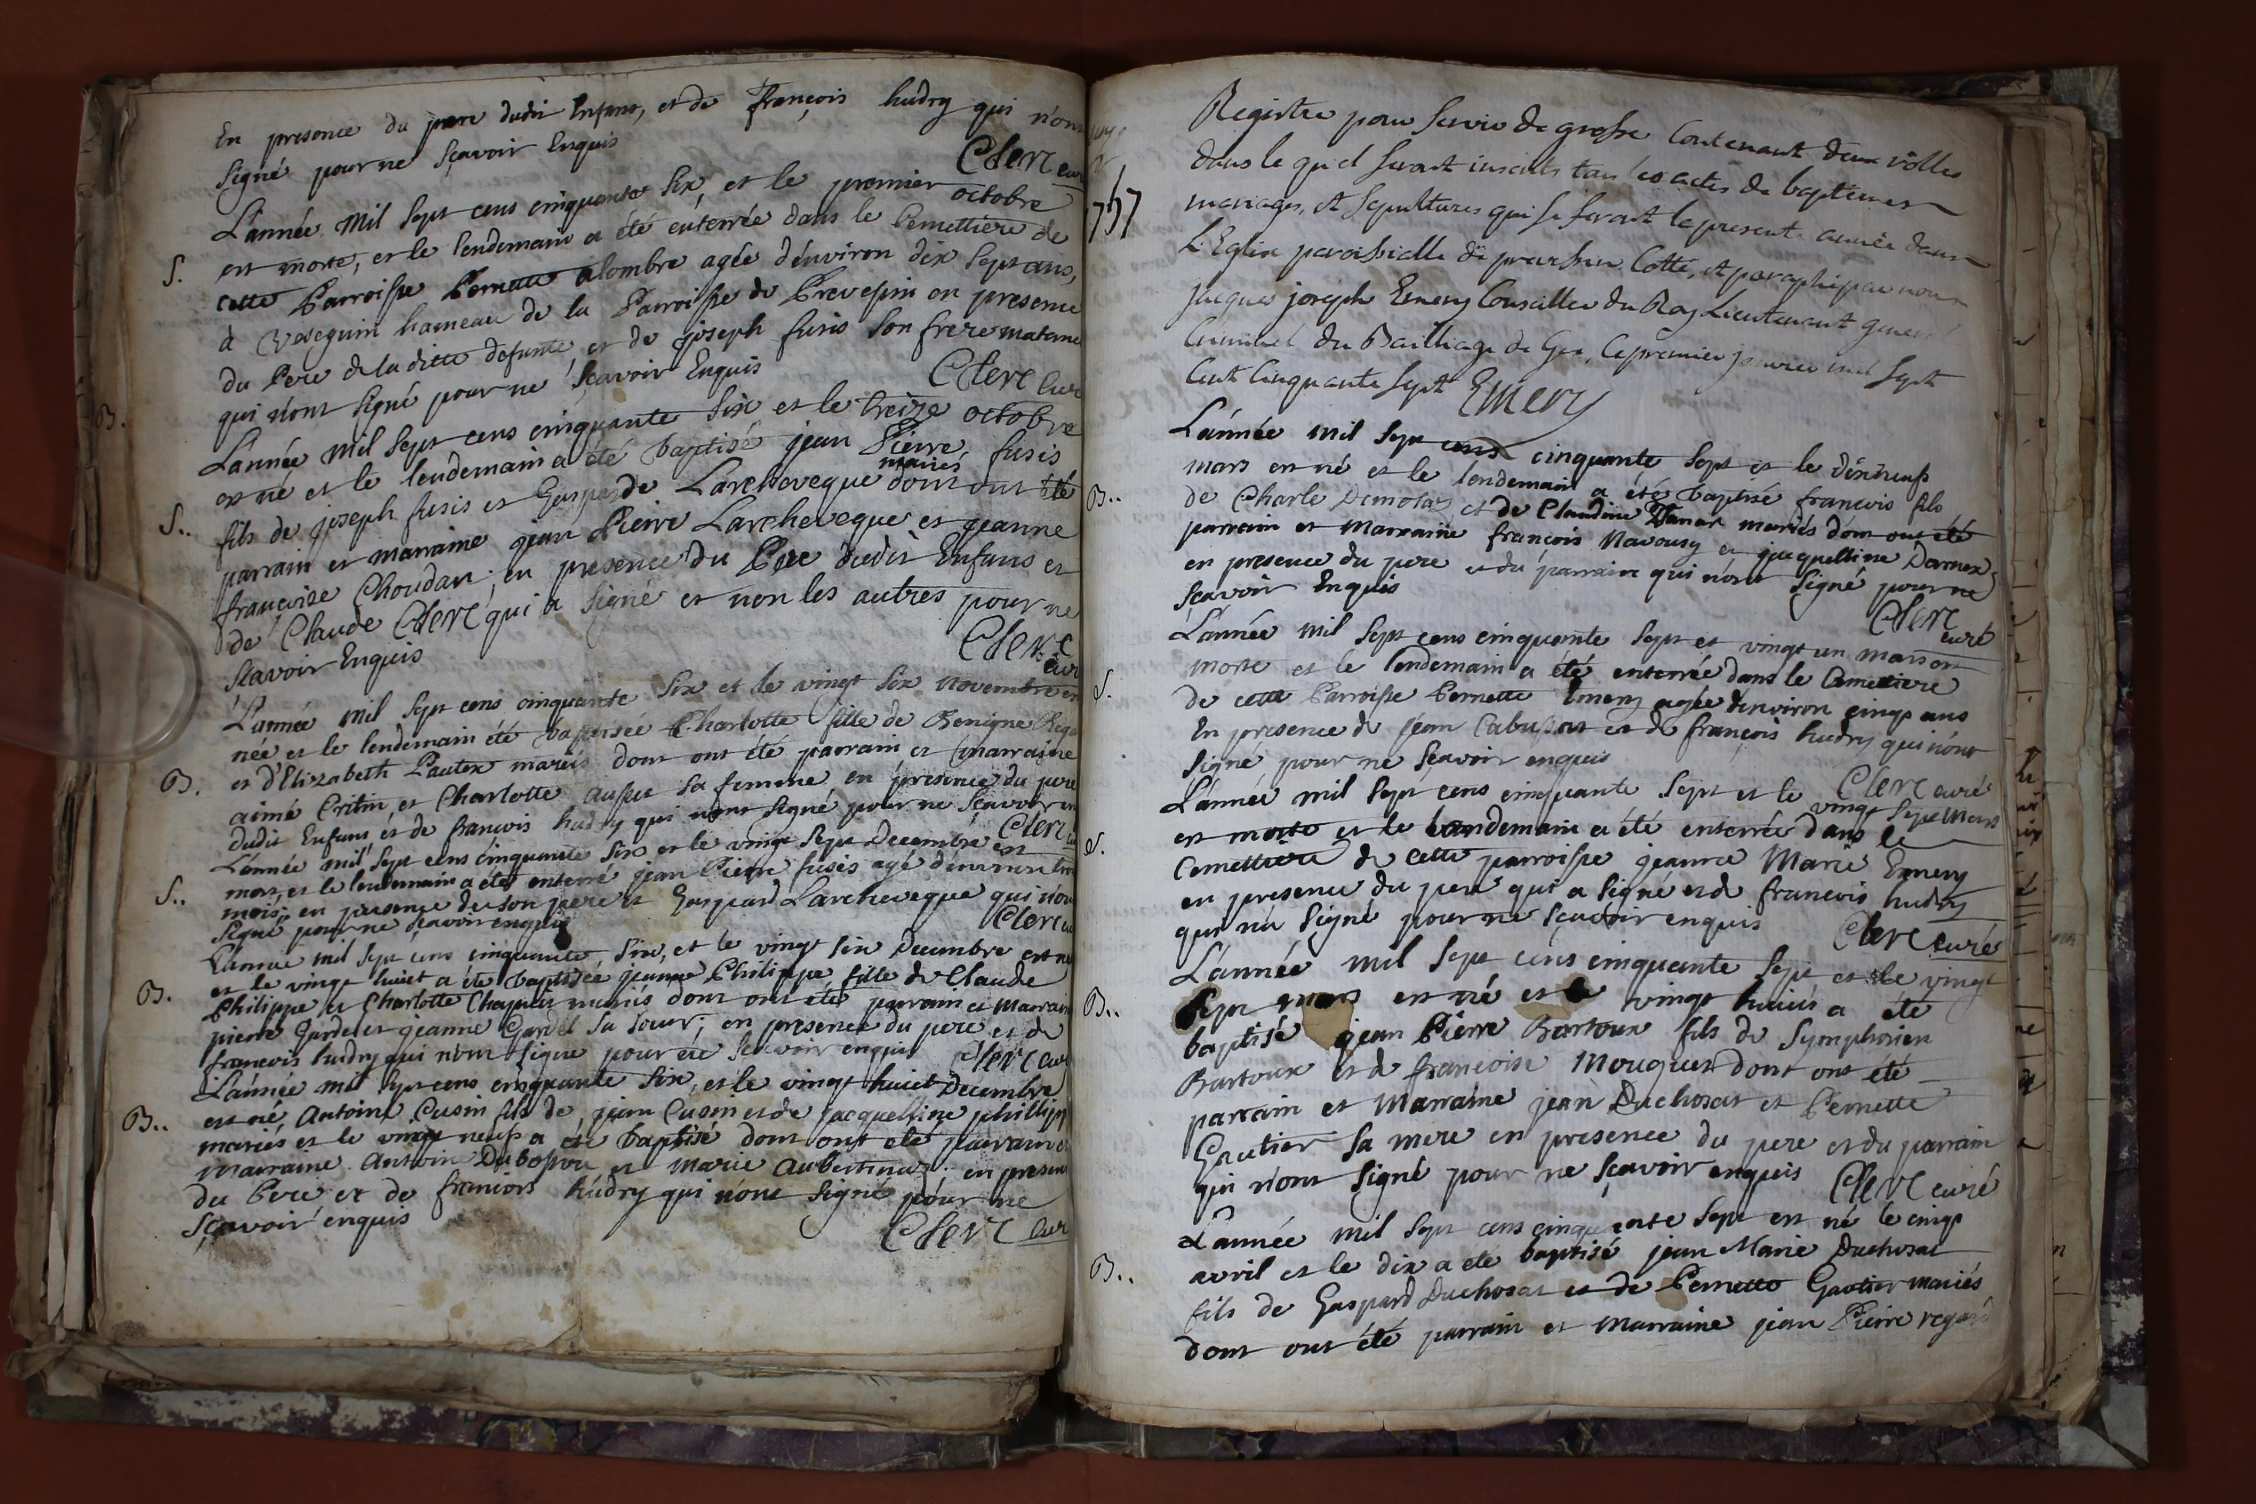 En presence du pere dudit Enfant, et de françois hudry qui n'ont
signé pour ne sçavoir Enquis
Clerc cur
L'année mil sept cens cinquante six, et le premier octobre
S. est morte, et le lendemain a été enterrée dans le Cemettiere de
cette Parroisse Pernette alombre agée d'environ dix sept ans,
à Veseguin hameau de la Parroisse de Prevesin en presence
du Pere de laditte defunte, et de joseph fusis son frere materne
qui n'ont signé pour ne sçavoir Enquis
Clerc cur
B. L'année mil sept cens cinquante six et le treize octobre
est né et le lendemain a été baptisé jean Pierre fusis
mariés
S.. fils de joseph fusis et Gasparde Larcheveque dont ont été
parrain et marraine jean Pierre Larcheveque et jeanne
françoise Choudan; en presence du Pere dudit Enfans et
de Claude Clerc qui a signé et non les autres pour ne
sçavoir Enquis
Clerc cur
L'année mil sept cens cinquante six et le vingt six novembre est
née et le lendemain été baptisée Charlotte fille de Benigne
B. et d'Elizabeth Pautex mariés dont ont été parrain et marraine
aimé Critin, et Charlotte sa femme en presence du pere
dudit Enfans et de francois hudry qui n'ont signé pour ne sçavoir en
Clerc cur
L'année mil sept cens cinquante six et le vingt sept Decembre est
S.. mort, et le lendemain a été enterré jean Pierre fusis agé d'environ
mois; en presence de son pere et Gaspard Larcheveque qui n'ont
signé pour ne sçavoir enquis
Clerc cu
L'année mil sept cens cinquante six, et le vingt six Decembre est né
et le vingt huict a été baptisée jeanne Philippe fille de Claude
B. Philippe et Charlotte Chapuis mariés dont ont été parrain et marrain
pierre Gardet et jeanne Gardet sa soeur; en presence du pere et de
francois hudry qui n'ont signé pour ne sçavoir enquis
Clerc cur
L'année mil sept cens cinquante six, et le vingt huict Decembre
B.. est né Antoine Cusin fils de jean Cusin et de jacquelline phillip
mariés et le vingt neufs a été baptisé dont ont été parrain et
marraine Antoine Dubosson et marie aubertin; en presen
du Pere et de francois hudry qui n'ont signé pour ne
sçavoir enquis
Clerc cur
Registre pour servir de grosse Contenant deux rôlles
dans le quel seront inscrits tous les actes de baptemes
1757 mariages, et sepultures qui se feront la presente année dans
L'Eglise paroissialle de prevessin Cotté, et paraphé par nous
jacques joseph Emery Conseiller du Roy Lieutenant general
Criminel du Bailliage de Gex, Ce premier janvier mil sept
Cent Cinquante sept Emery
L'année mil sept cens cinquante sept et le dixneufs
mars est né et le lendemain a été baptisé francois fils
B.. de Charle et de Claudine mariés dont ont été
parrain et marraine françois Navousy et jacquelline Darnex
en presence du pere et du parrain qui n'ont signé pour ne
sçavoir Enquis
Clerc curé
L'année mil sept cens cinquante sept et vingt un mars est
morte et le lendemain a été enterrée dans le Cemettiere
S. de cette Parroisse Pernette Emery agée denviron cinq ans
En presence de jean Cabussat et de françois hudry qui n'ont
signé pour ne sçavoir enquis
Clerc curé
L'année mil sept cens cinquante sept et le vingt sept mars
S. est morte et le lendemain a été enterrée dans le
Cemettiere de cette parroisse jeanne Marie Emery
en presence du pere qui a signé et de francois hudry
qui n'a signé pour ne sçavoir enquis
Clerc curé
L'année mil sept cens cinquante sept et le vingt
B.. sept mars est né et le vingt huict a été
baptisé jean Pierre Bartoux fils de Symphorien
Bartoux et de francoise Mouquet dont ont été
parrain et Marraine jean Duchosat et Pernette
Gautier sa mere en presence du pere et du parrain
qui n'ont signé pour ne sçavoir enquis
Clerc curé
L'année mil sept cens cinquante sept est né le cinq
B.. avril et le dix a été baptisé jean Marie Duchosat
fils de Gaspard Duchosat et de Pernette Gautier mariés
dont ont été parrain et marraine jean Pierre regard